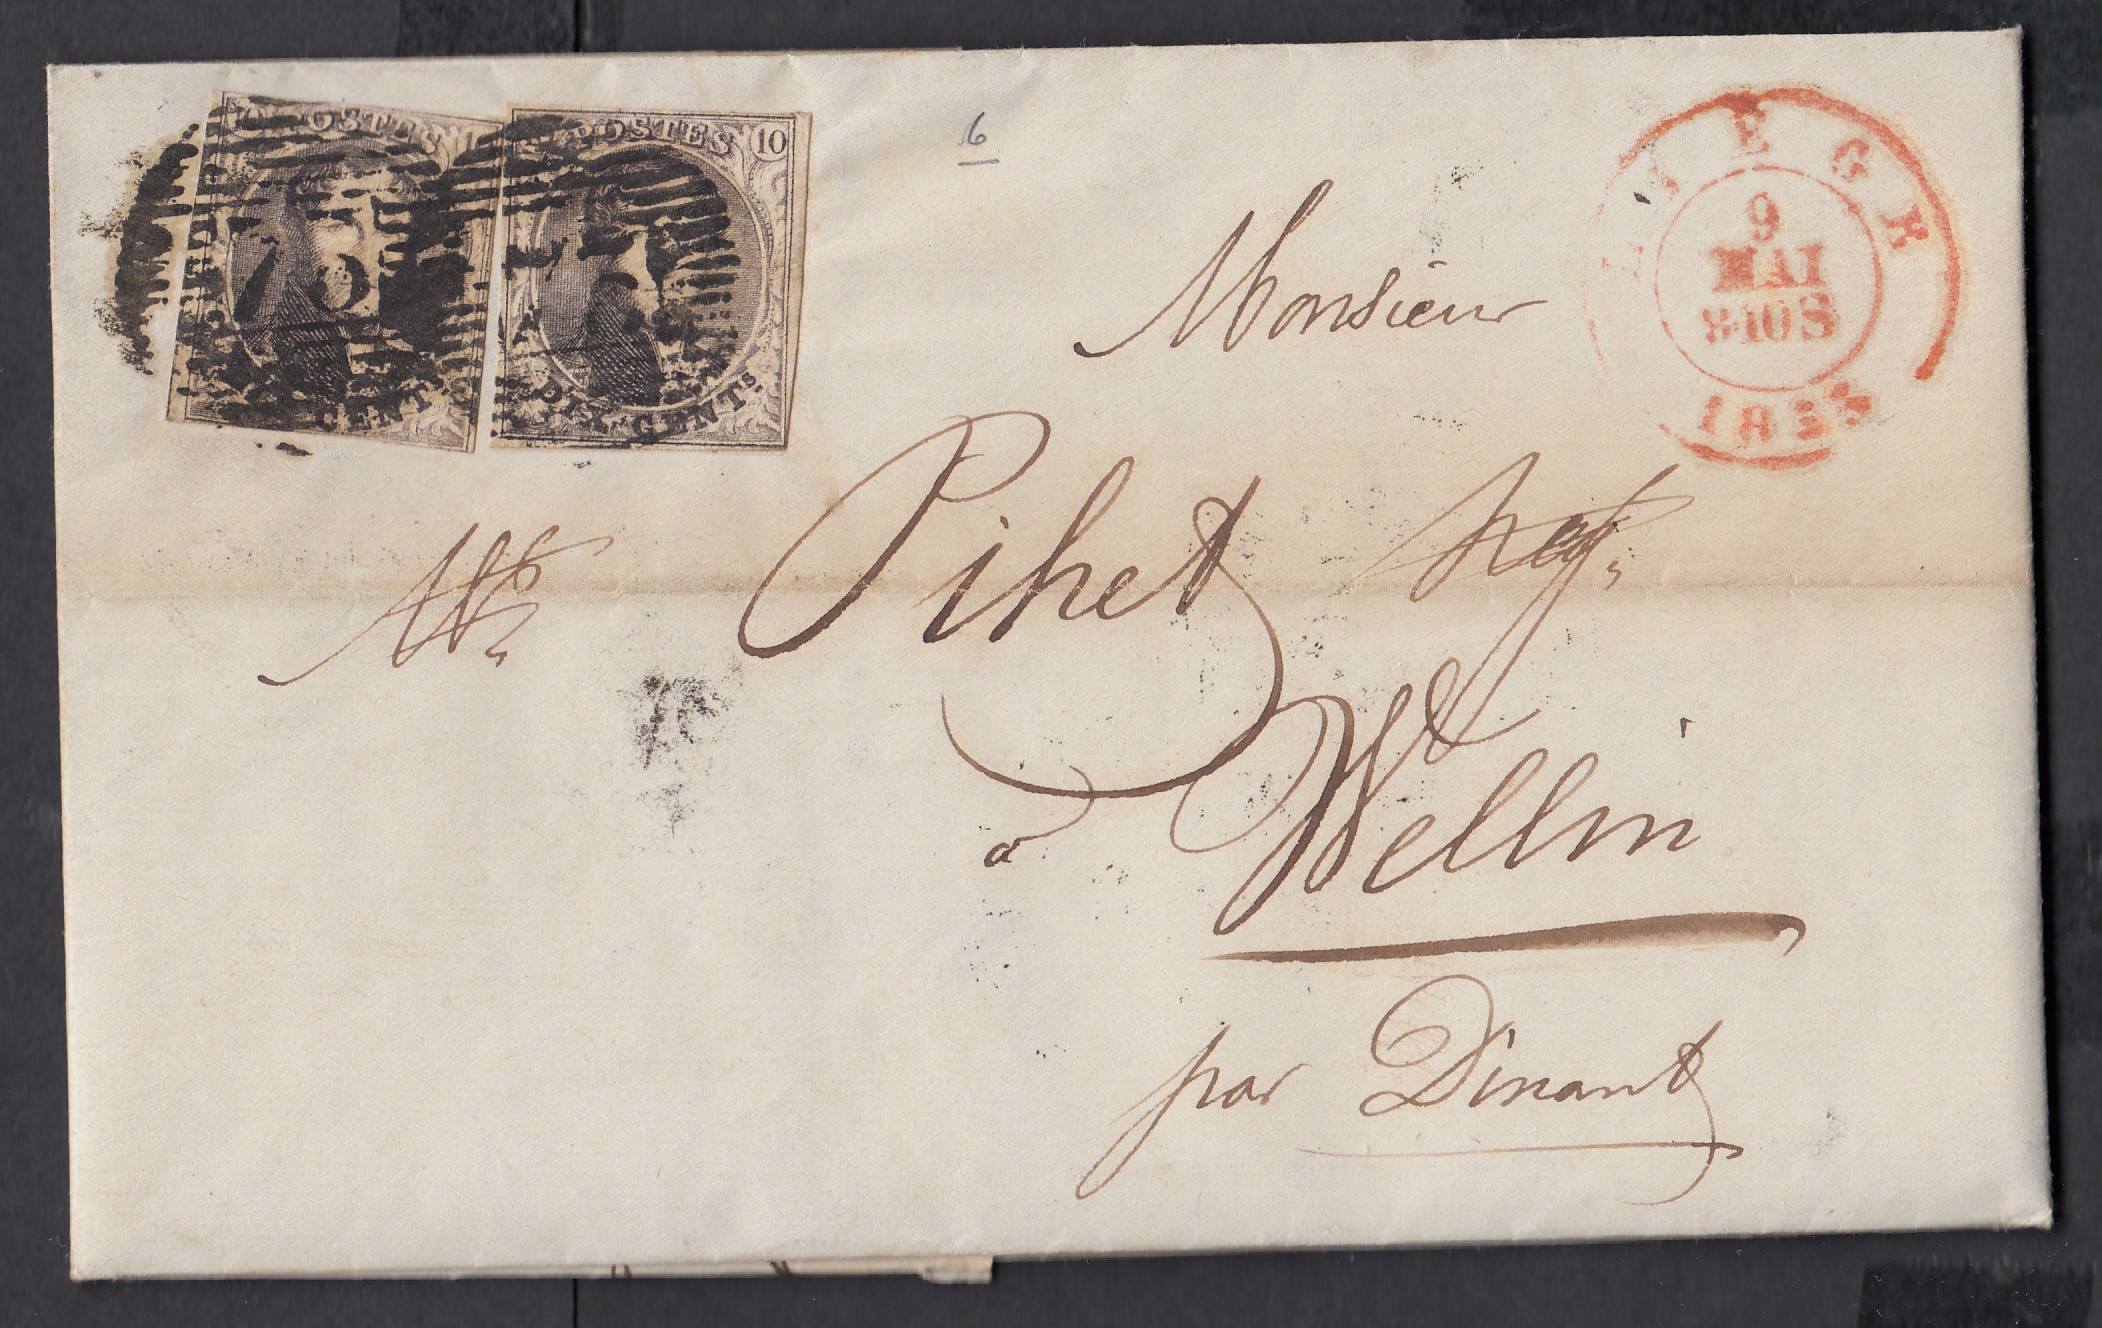 POSTES 10
POSTES 10
73
CENTS
DIX CENTS.
6
LIEGE
9
MAI
8-10S
1853
Monsieur
Pihet Negt
à Wellin
par Dinant